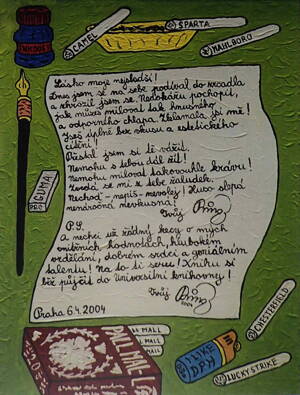 CAMEL
ŠPARTA
MARLBORO
Lásko moje nejsladší!
Dnes jsem se na sebe podíval do zrcadla
a zhrozil jsem se. Nedokážu pochopit,
jak můžeš milovat tak hnusného
a odporného chlapa. Zklamala jsi mě!
Jseš úplně bez vkusu a estetického
cítění!
Přestal jsem si tě vážit.
Nemohu s tebou dál žít!
Nemohu milovat takovouhle krávu!
Zvedá se mi z tebe žaludek.
Nechoď - nepiš - nevolej! Huso slepá
nenáročná nevkusná!
Tvůj
P.S.
A nechci už žádný kecy o mých
vnitřních hodnotách, hlubokém
vzdělání, dobrém srdci a geniálním
talentu! Na to ti seru! Knihu si
běž půjčit do univerzitní knihovny!
Tvůj
Praha 6.4.2004
GUMA
PALL MALL
MALL
MALL
MALL
I LIKE
DPH
CHESTERFIELD
LUCKY STRIKE